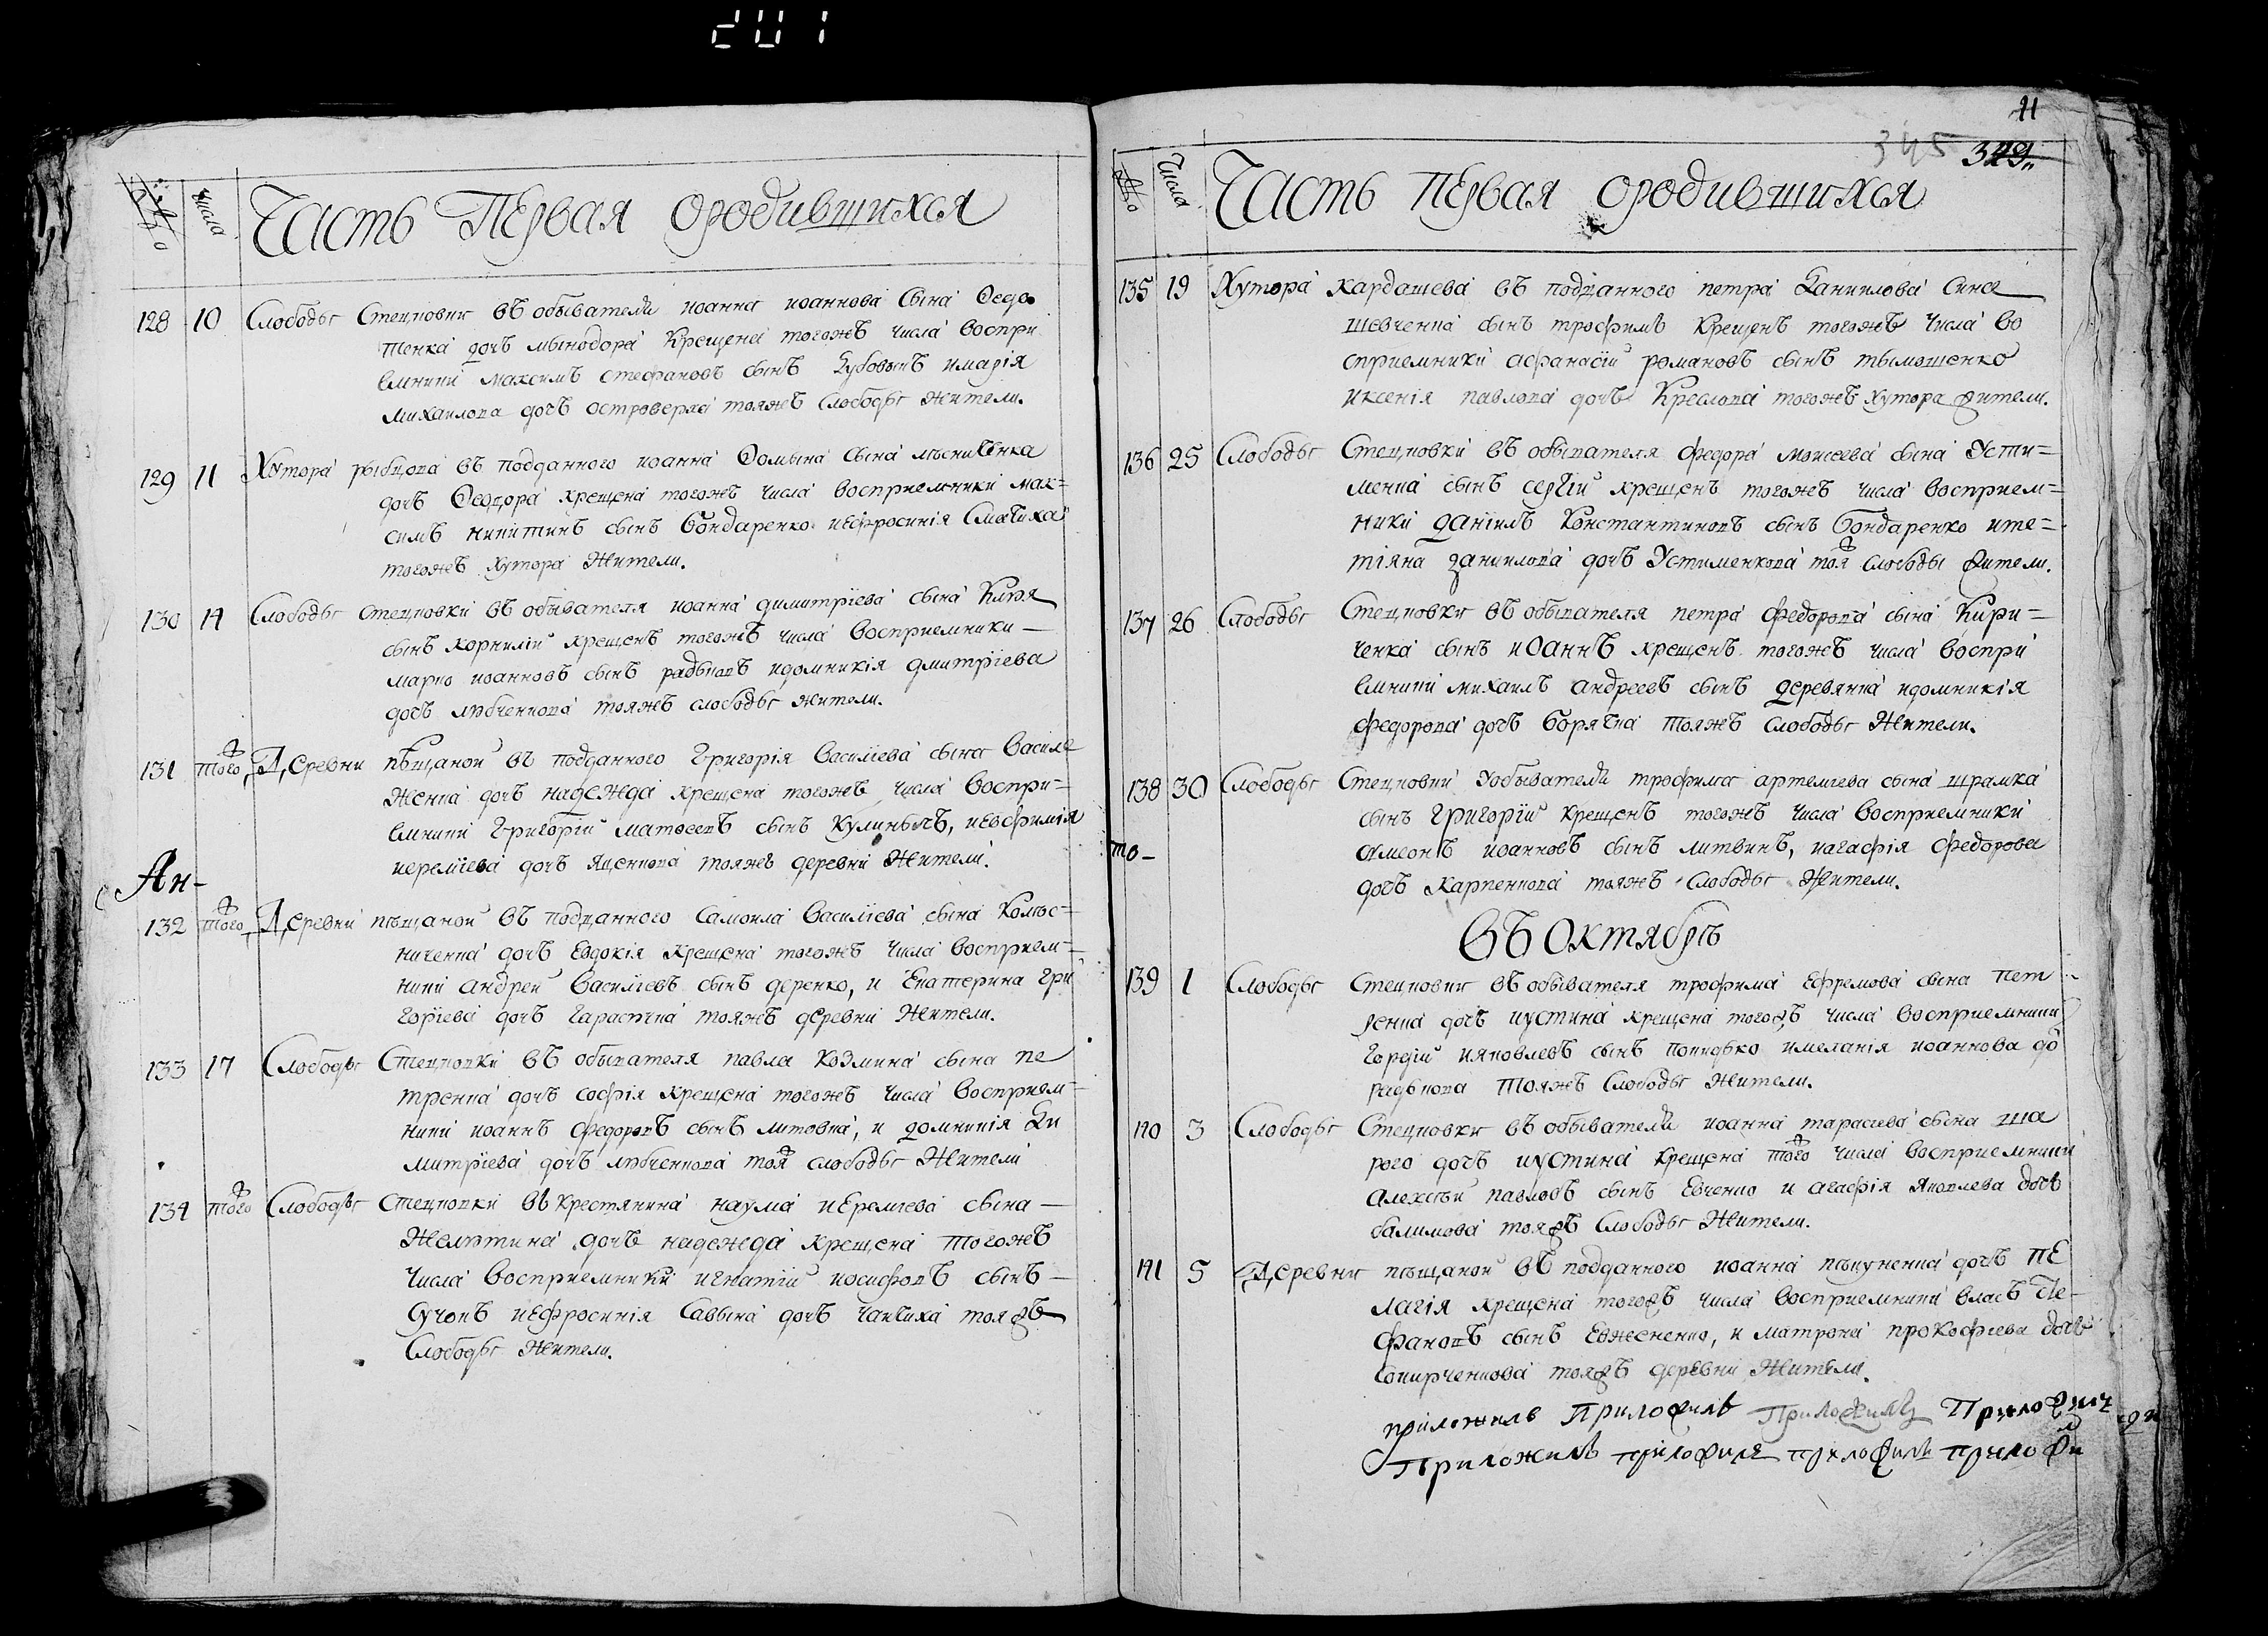 201
№
числа
Часть Первая ородившихся
128 10 Слободы Стецковки въ обывателя иоанна иоаннова сына Ѳедо
тенка дочъ мынодора крещена тогожъ числа воспри
емники максимъ стефановъ сынъ Зубовынъ имарія
михаилова дочъ островерха тояжъ Слободы жители.
129 11 Хутора рыбцова въ подданного иоанна Ѳомына сына мѣсниченка
дочъ Ѳеодора крещена тогожъ числа восприемники мак=
симъ никитинъ сынъ бондаренко иефросинія
тогожъ Хутора Жители.
130 14 Слободы Стецковки въ обывателя иоанна димитріева сына
сынъ корнилій крещенъ тогожъ числа восприемники —
марко иоанновъ сынъ радьковъ идомникія дмитріева
дочъ любченкова тояжъ слободы жители.
131 тогож Деревни пѣщаной въ подданного Григорія Василіева сына Василе
женка дочъ надежда крещена тогожъ числа воспри=
емники Григорій матвеевъ сынъ кулинычъ, иевфимія
иереміева дочъ яценкова тояжъ деревни Жители.
Ан-
132 тогож Деревни пѣщаной въ подданного Самоила Василіева сына Колѣс=
ниченка дочъ Евдокія крещена тогожъ числа восприем=
ники андрей Василіевъ сынъ деренко, и Екатерина гри
горіева дочъ тояжъ деревни Жители.
133 17 Слободы Стецковки въ обывателя павла козмина сына пе
тренка дочъ софія крещена тогожъ числа восприем=
ники иоаннъ федоровъ сынъ литовка, и домникія Ди
митріева дочъ любченкова тояж слободы Жители
134 тогож Слободы Стецковки въ крестянина наума иереміева сына —
дочъ надежда крещена тогожъ
числа восприемники игнатій иосифовъ сынъ —
иефросинія Саввына дочъ тояжъ
Слободы Жители.
41
345 349.
№
Числа
Часть Первая ородившихся
135 19 Хутора кардашева въ подданного петра Даниилова сина
шевченка сынъ трофимъ крещенъ тогожъ числа во
сприемники афанасій романовъ сынъ тымошенко
иксенія павлова дочъ тогожъ хутора жители.
136 25 Слободы Стецковки въ обывателя федора моисеева сына Усти=
менка сынъ сергій крещенъ тогожъ числа восприем=
ники даніилъ константиновъ сынъ бондаренко ите=
тіяна даниилова дочъ Устименкова тояж слободы жители.
137 26 Слободы Стецковки въ обывателя петра федорова сына Кири=
ченка сынъ иоаннъ крещенъ тогожъ числа воспри
емники михаилъ андреевъ сынъ деревянка идомникія
федорова дочъ боряѣка тояжъ слободы Жители.
138 30 Слободы Стецковки Уобывателя трофима артеміева сына шрамка
сынъ григорій крещенъ тогожъ числа восприемники
симеонъ иоанновъ сынъ литвинъ, иагафія федорова
дочъ карпенкова тояжъ Слободы Жители.
то-
въ октябрѣ
139 1 Слободы Стецковки въ обывателя трофима ефремова сына пет
ренка дочъ иустина крещена тогожъ числа восприемники
гордій ияковлевъ сынъ имеланія иоаннова до
радькова тояжъ слободы жители.
140 3 Слободы Стецковки въ обывателя иоанна тарасіева сына ша
рого дочъ иустина крещена тогож числа восприемники
алексѣй павловъ сынъ Евченко и агафія яковлева дочъ
балимова тояжъ Слободы Жители.
141 5 Деревни пѣщаной въ подданного иоанна дочъ пе
лагія крещена тогожъ числа восприемники власъ сте-
фановъ сынъ Евжененко, и матрона прокофіева дочъ
тояжъ деревни Жители.
приложилъ Приложилъ Приложилъ Приложилъ
Приложилъ приложилъ приложилъ приложи